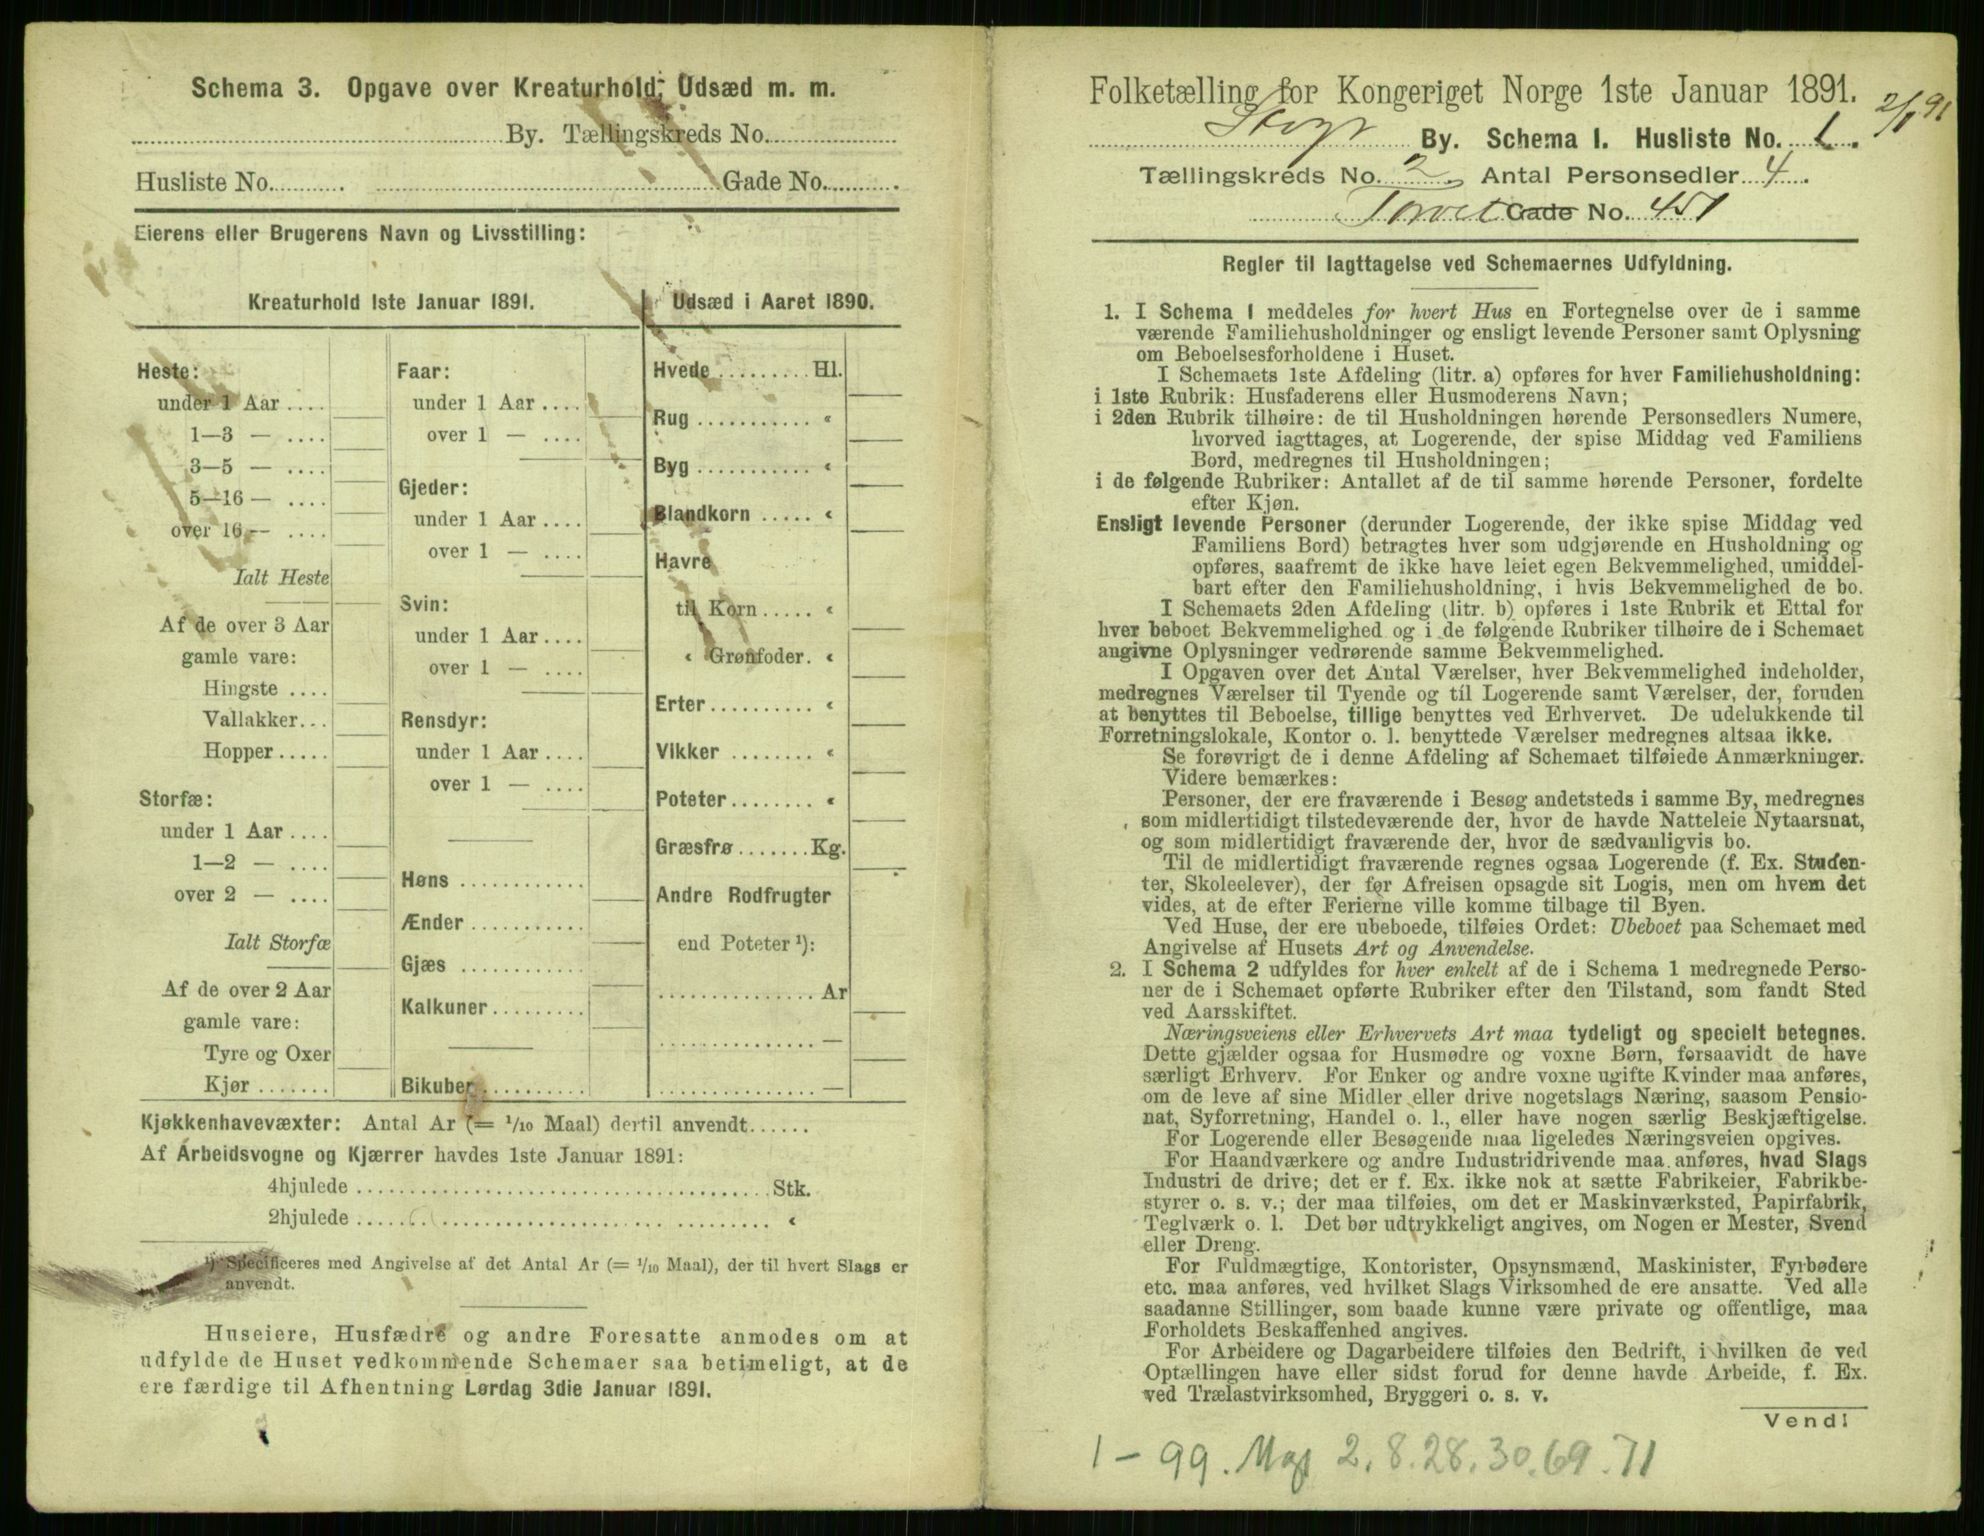 Schema 3. Opgave over Kreaturhold, Udsæd m. m.
By. Tællingskreds No.
Husliste No. Gade No.
Eierens eller Brugerens Navn og Livsstilling:
Kreaturhold 1ste Januar 1891.
Heste:
under 1 Aar
1—3 —
3—5 —
5—16 —
over 16 —
Ialt Heste
Af de over 3 Aar
gamle vare:
Hingste
Vallakker
Hopper
Storfæ:
under 1 Aar
1—2 —
over 2 —
Ialt Storfæ
Af de over 2 Aar
gamle vare:
Tyre og Oxer
Kjør
Faar:
under 1 Aar
over 1 —
Gjeder:
under 1 Aar
over 1 —
Svin:
under 1 Aar
over 1 —
Rensdyr:
under 1 Aar
over 1 —
Høns
Ænder
Gjæs
Kalkuner
Bikuber
Udsæd i Aaret 1890.
Hvede Hl.
Rug «
Byg «
Blandkorn «
Havre
til Korn «
« Grønfoder. «
Erter «
Vikker «
Poteter «
Græsfrø Kg.
Andre Rodfrugter
end Poteter ¹):
Ar
—
—
Kjøkkenhavevæxter: Antal Ar (= 1/10 Maal) dertil anvendt
Af Arbeidsvogne og Kjærrer havdes 1ste Januar 1891:
4hjulede Stk.
2hjulede «
¹) Specificeres med Angivelse af det Antal Ar (= 1/10 Maal), der til hvert Slags er
anvendt.
Huseiere, Husfædre og andre Foresatte anmodes om at
udfylde de Huset vedkommende Schemaer saa betimeligt, at de
ere færdige til Afhentning Lørdag 3die Januar 1891.
Folketælling for Kongeriget Norge 1ste Januar 1891.
2/1 91
By. Schema I. Husliste No. 1.
Tællingskreds No. 2 Antal Personsedler 4
Torvet Gade No. 451
Regler til Iagttagelse ved Schemaernes Udfyldning.
1. I Schema 1 meddeles for hvert Hus en Fortegnelse over de i samme
værende Familiehusholdninger og ensligt levende Personer samt Oplysning
om Beboelsesforholdene i Huset.
I Schemaets 1ste Afdeling (litr. a) opføres for hver Familiehusholdning:
i 1ste Rubrik: Husfaderens eller Husmoderens Navn;
i 2den Rubrik tilhøire: de til Husholdningen hørende Personsedlers Numere,
hvorved iagttages, at Logerende, der spise Middag ved Familiens
Bord, medregnes til Husholdningen;
i de følgende Rubriker: Antallet af de til samme hørende Personer, fordelte
efter Kjøn.
Ensligt levende Personer (derunder Logerende, der ikke spise Middag ved
Familiens Bord) betragtes hver som udgjørende en Husholdning og
opføres, saafremt de ikke have leiet egen Bekvemmelighed, umiddel-
bart efter den Familiehusholdning, i hvis Bekvemmelighed de bo.
I Schemaets 2den Afdeling (litr. b) opføres i 1ste Rubrik et Ettal for
hver beboet Bekvemmelighed og i de følgende Rubriker tilhøire de i Schemaet
angivne Oplysninger vedrørende samme Bekvemmelighed.
I Opgaven over det Antal Værelser, hver Bekvemmelighed indeholder,
medregnes Værelser til Tyende og til Logerende samt Værelser, der, foruden
at benyttes til Beboelse, tillige benyttes ved Erhvervet. De udelukkende til
Forretningslokale, Kontor o. l. benyttede Værelser medregnes altsaa ikke.
Se forøvrigt de i denne Afdeling af Schemaet tilføiede Anmærkninger.
Videre bemærkes:
Personer, der ere fraværende i Besøg andetsteds i samme By, medregnes
som midlertidigt tilstedeværende der, hvor de havde Natteleie Nytaarsnat,
og som midlertidigt fraværende der, hvor de sædvanligvis bo.
Til de midlertidigt fraværende regnes ogsaa Logerende (f. Ex. Studen-
ter, Skoleelever), der før Afreisen opsagde sit Logis, men om hvem det
vides, at de efter Ferierne ville komme tilbage til Byen.
Ved Huse, der ere ubeboede, tilføies Ordet: Ubeboet paa Schemaet med
Angivelse af Husets Art og Anvendelse.
2. I Schema 2 udfyldes for hver enkelt af de i Schema 1 medregnede Perso-
ner de i Schemaet opførte Rubriker efter den Tilstand, som fandt Sted
ved Aarsskiftet.
Næringsveiens eller Erhvervets Art maa tydeligt og specielt betegnes.
Dette gjælder ogsaa for Husmødre og voxne Børn, forsaavidt de have
særligt Erhverv. For Enker og andre voxne ugifte Kvinder maa anføres,
om de leve af sine Midler eller drive nogetslags Næring, saasom Pensio-
nat, Syforretning, Handel o. l., eller have nogen særlig Beskjæftigelse.
For Logerende eller Besøgende maa ligeledes Næringsveien opgives.
For Haandværkere og andre Industridrivende maa anføres, hvad Slags
Industri de drive; det er f. Ex. ikke nok at sætte Fabrikeier, Fabrikbe-
styrer o. s. v.; der maa tilføies, om det er Maskinværksted, Papirfabrik,
Teglværk o. l. Det bør udtrykkeligt angives, om Nogen er Mester, Svend
eller Dreng.
For Fuldmægtige, Kontorister, Opsynsmænd, Maskinister, Fyrbødere
etc. maa anføres, ved hvilket Slags Virksomhed de ere ansatte. Ved alle
saadanne Stillinger, som baade kunne være private og offentlige, maa
Forholdets Beskaffenhed angives.
For Arbeidere og Dagarbeidere tilføies den Bedrift, i hvilken de ved
Optællingen have eller sidst forud for denne havde Arbeide, f. Ex.
ved Trælastvirksomhed, Bryggeri o. s. v.
Vend!
1 – 99. 2. 8. 28. 30. 69. 71